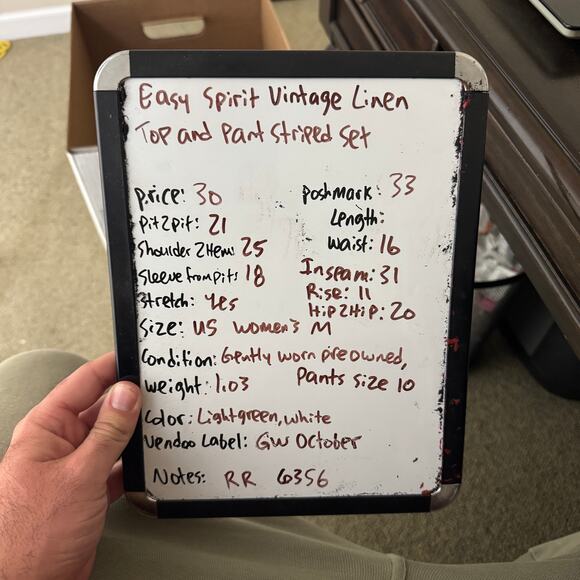 Easy Spirit Vintage Linen
Top and Pant Striped Set
price: 30
poshmark: 33
pit2pit: 21
Length:
Shoulder 2 Hem: 25
Waist: 16
Sleeve from pits 18
Inseam: 31
Stretch: Yes
Rise: 11
Hip2Hip: 20
Size: US Women's M
Condition: Gently worn preowned,
weight: 1.03
Pants size 10
Color: Light green, white
Vendoo Label: GW October
Notes: RR 6356